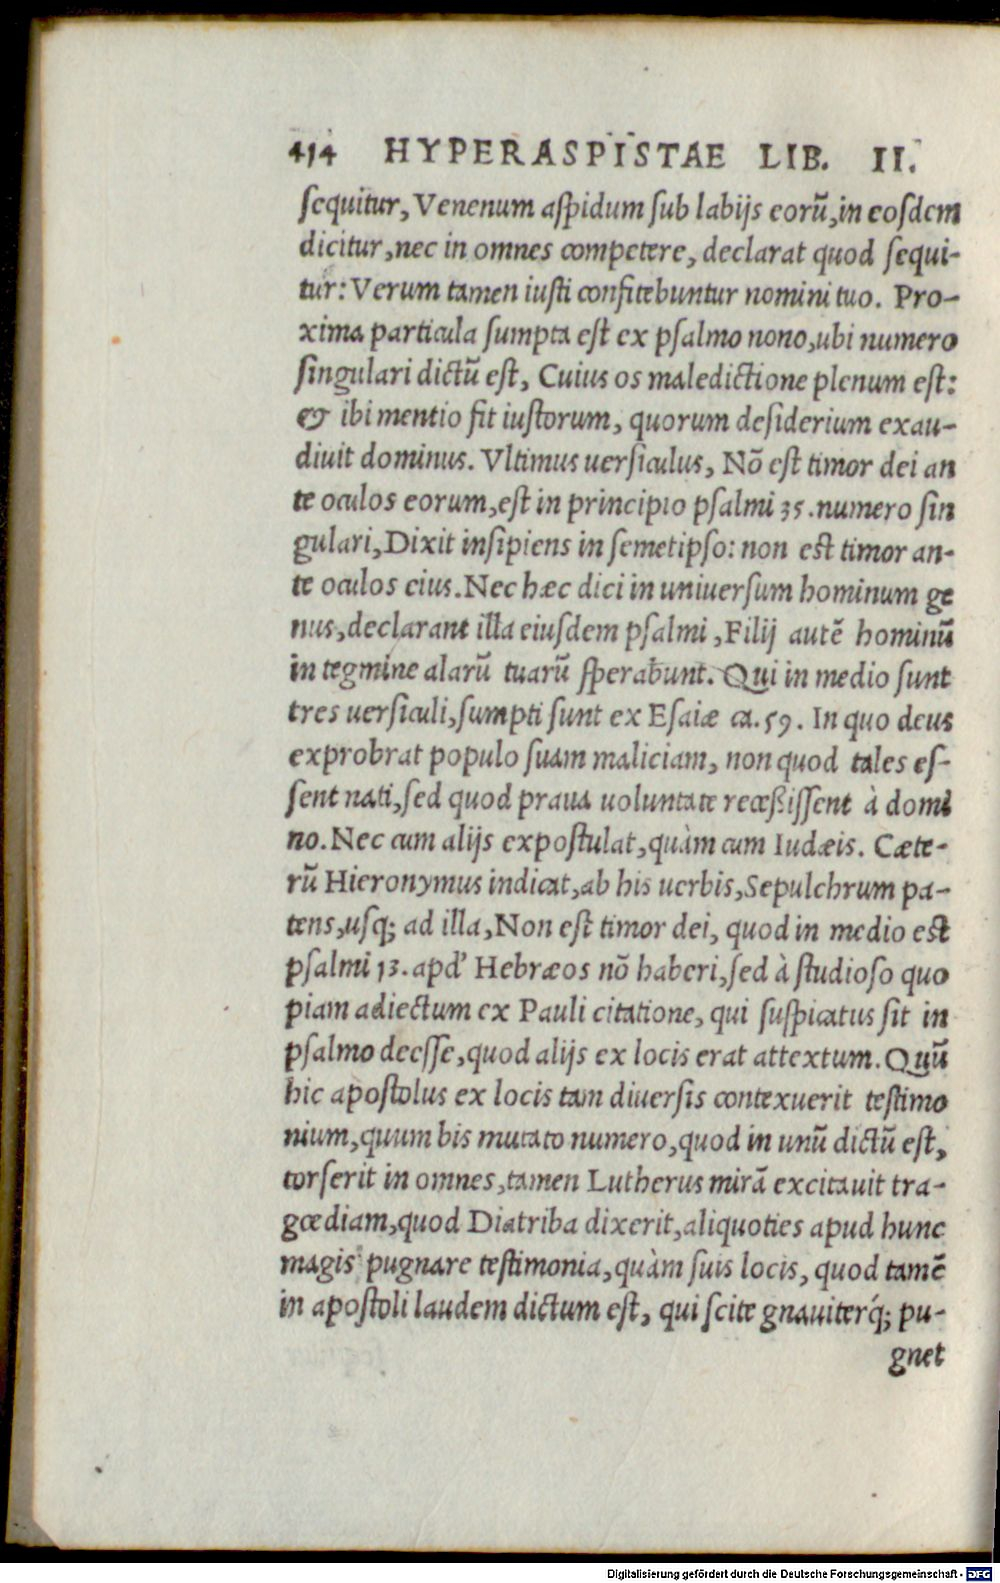 414 HYPERASPISTAE LIB. II.
sequitur, Venenum aspidum sub labijs eorũ, in eosdem
dicitur, nec in omnes competere, declarat quod sequi-
tur: Verum tamen iusti confitebuntur nomini tuo. Pro-
xima particula sumpta est ex psalmo nono, ubi numero
singulari dictũ est, Cuius os maledictione plenum est:
& ibi mentio fit iustorum, quorum desiderium exau-
diuit dominus. Vltimus uersiculus, Nõ est timor dei an
te oculos eorum, est in principio psalmi 35. numero sin
gulari, Dixit insipiens in semetipso: non est timor an-
te oculos eius. Nec hæc dici in uniuersum hominum ge
nus, declarant illa eiusdem psalmi, Filij autẽ hominũ
in tegmine alarũ tuarũ sperabunt. Qui in medio sunt
tres uersiculi, sumpti sunt ex Esaiæ ca. 59. In quo deus
exprobrat populo suam maliciam, non quod tales es-
sent nati, sed quod praua uoluntate receßissent à domi
no. Nec cum alijs expostulat, quàm cum Iudæis. Cæte-
rũ Hieronymus indicat, ab his uerbis, Sepulchrum pa-
tens, usq; ad illa, Non est timor dei, quod in medio est
psalmi 13. apd' Hebræos nõ haberi, sed à studioso quo
piam adiectum ex Pauli citatione, qui suspicatus sit in
psalmo deesse, quod alijs ex locis erat attextum. Quũ
hic apostolus ex locis tam diuersis contexuerit testimo
nium, quum bis mutato numero, quod in unũ dictũ est,
torserit in omnes, tamen Lutherus mirã excitauit tra-
gœdiam, quod Diatriba dixerit, aliquoties apud hunc
magis pugnare testimonia, quàm suis locis, quod tamẽ
in apostoli laudem dictum est, qui scite gnauiterq́; pu-
gnet
Digitalisierung gefördert durch die Deutsche Forschungsgemeinschaft - DFG